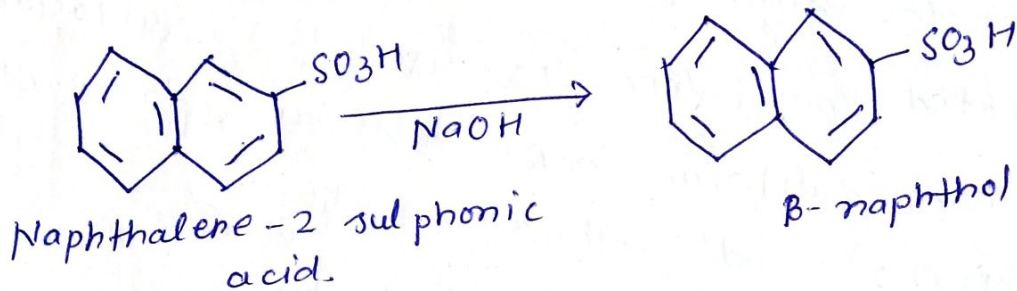 SO3H
NaOH
SO3H
Naphthalene-2 sulphonic
acid.
β-naphthol